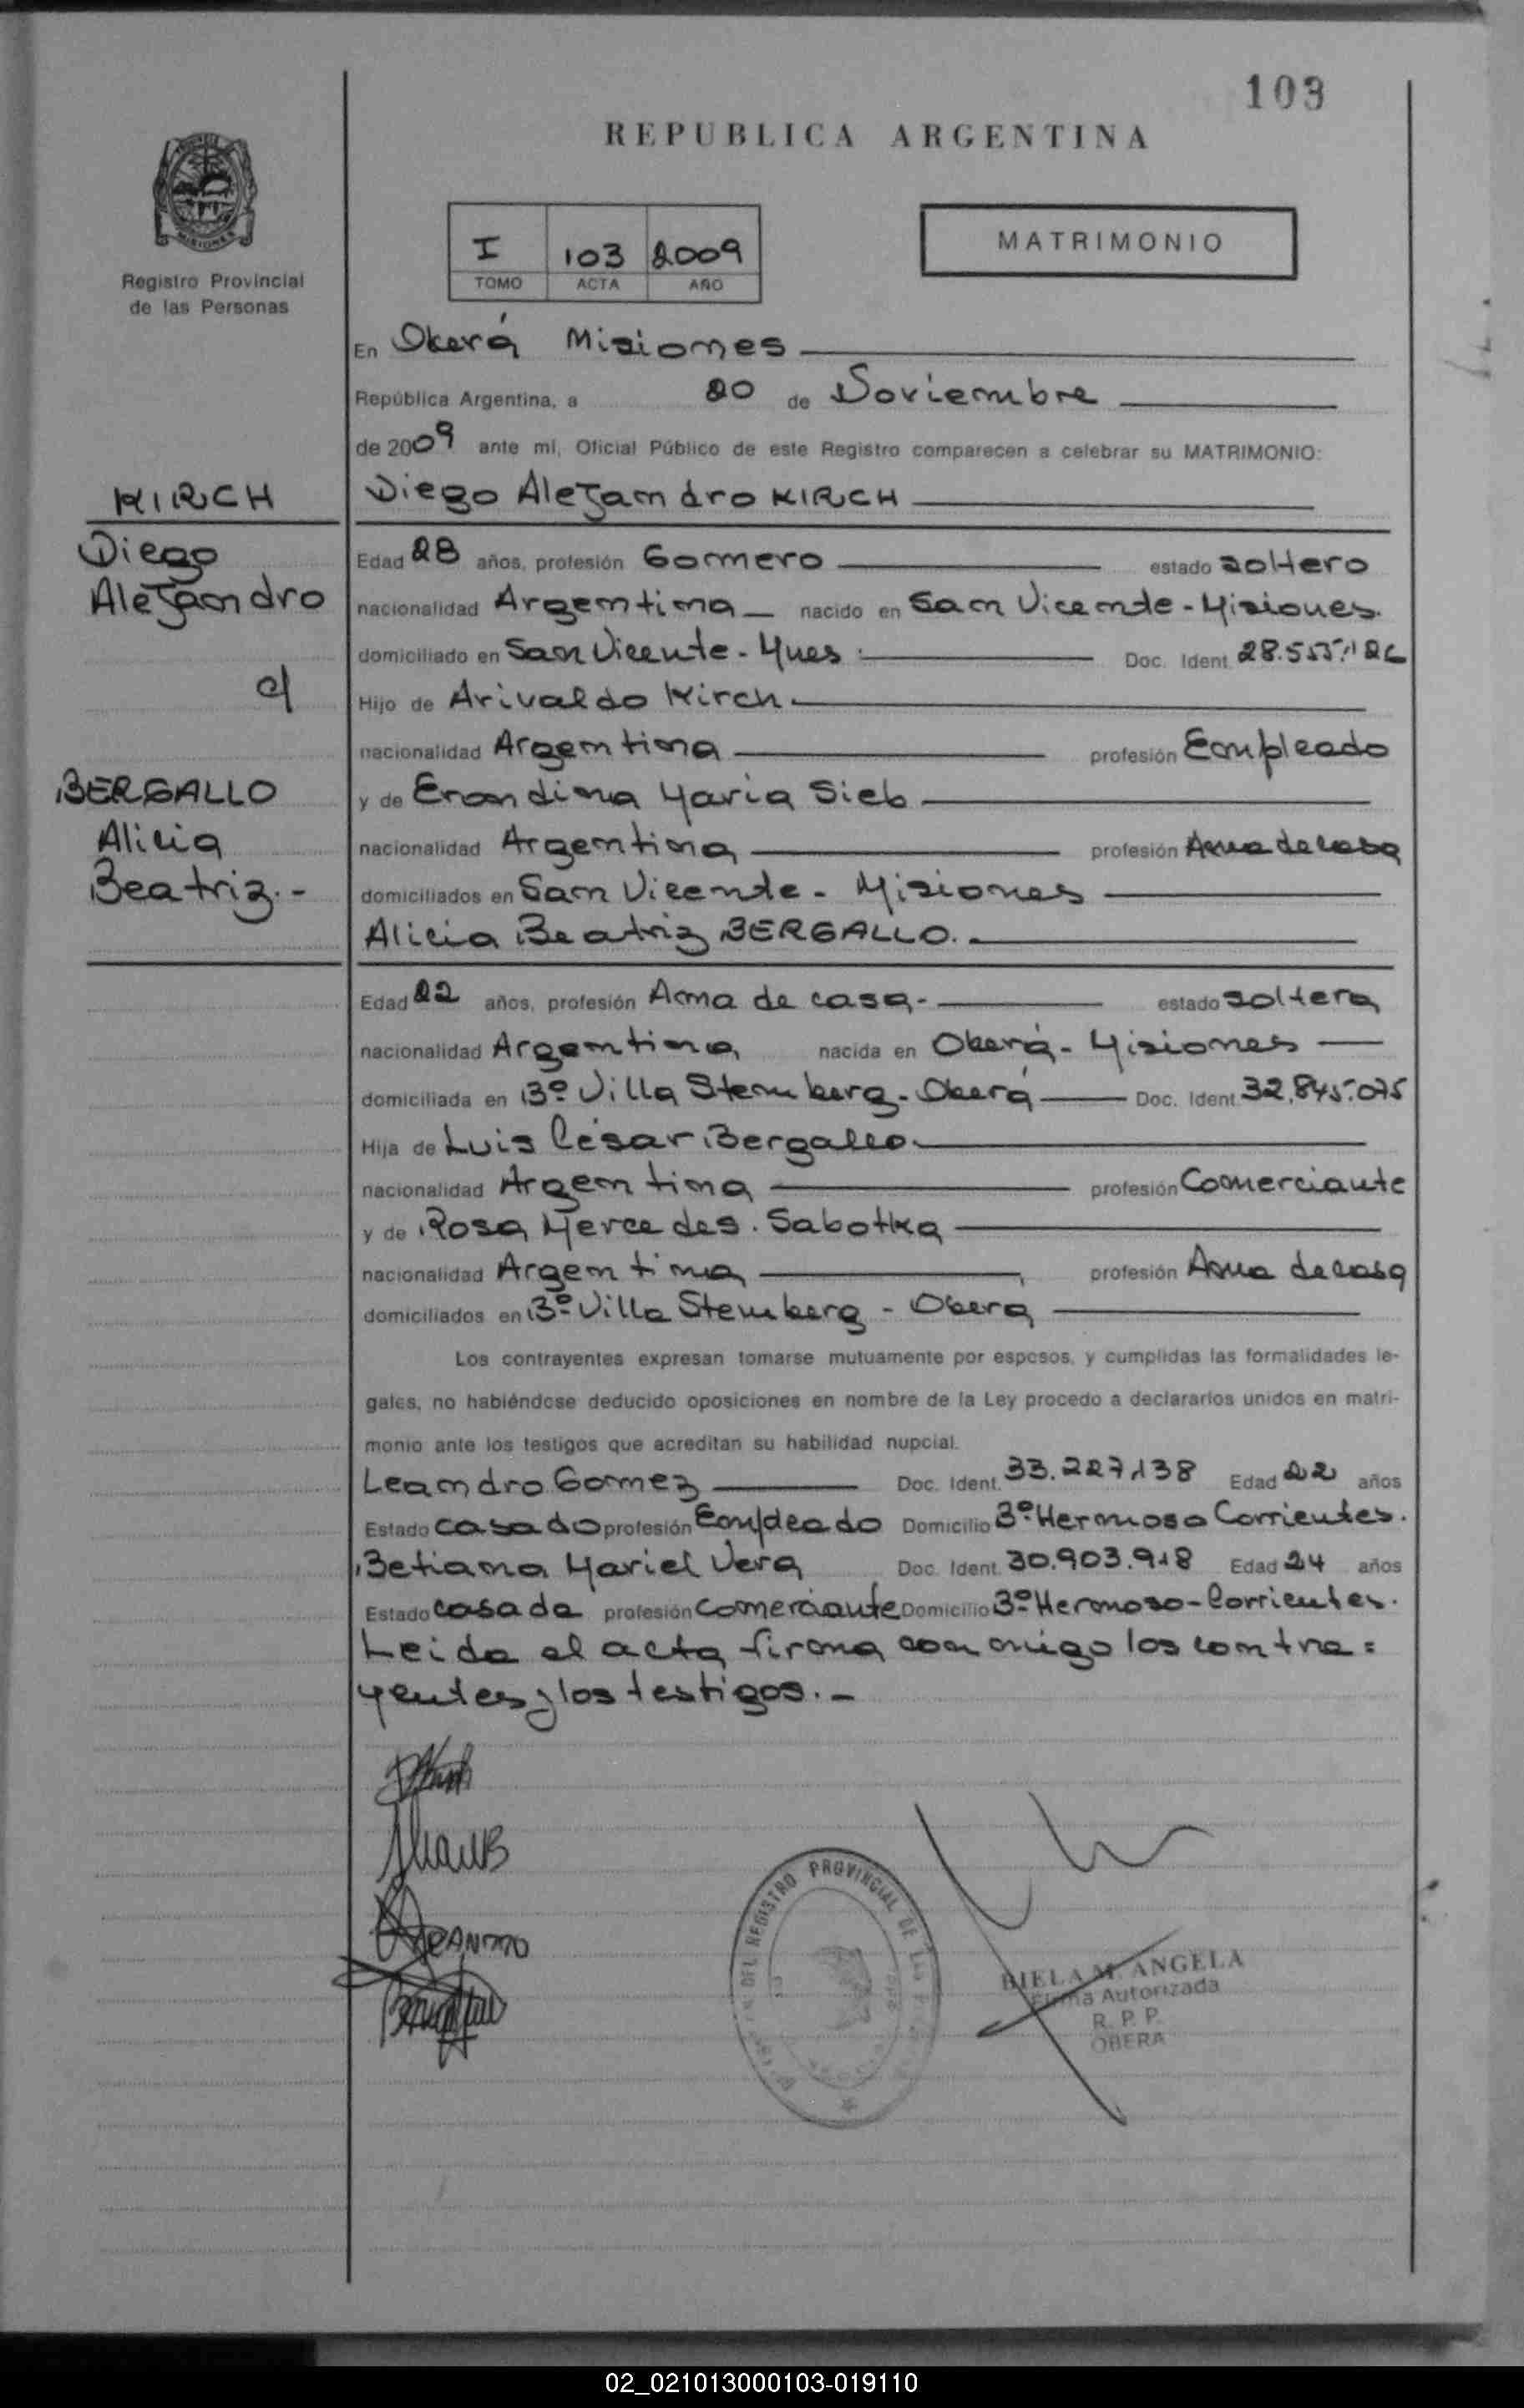 103
REPUBLICA ARGENTINA
MISIONES
Registro Provincial
de las Personas
I 103 2009
TOMO ACTA AÑO
MATRIMONIO
En Oberá Misiones
República Argentina, a 20 de Noviembre
de 2009 ante mi, Oficial Público de este Registro comparecen a celebrar su MATRIMONIO:
KIRCH
Diego
Alejandro
c/
BERGALLO
Alicia
Beatriz.-
Diego Alejandro KIRCH
Edad 28 años, profesión Gomero estado soltero
nacionalidad Argentina nacido en San Vicente - Misiones.
domiciliado en San Vicente - Mnes. Doc. Ident.
Hijo de Arivaldo Kirch
nacionalidad Argentina profesión Empleado
y de Erondina Maria Sieb
nacionalidad Argentina profesión Ama de casa
domiciliados en San Vicente - Misiones
Alicia Beatriz BERGALLO.
Edad 22 años, profesión Ama de casa.- estado soltera
nacionalidad Argentina nacida en Oberá - Misiones
domiciliada en Bº Villa Stemberg - Oberá Doc. Ident. 32.845.075
Hija de Luis César Bergallo
nacionalidad Argentina profesión Comerciante
y de Rosa Mercedes. Sabotka
nacionalidad Argentina profesión Ama de casa
domiciliados en Bº Villa Stemberg - Oberá
Los contrayentes expresan tomarse mutuamente por esposos, y cumplidas las formalidades le-
gales, no habiéndose deducido oposiciones en nombre de la Ley procedo a declararlos unidos en matri-
monio ante los testigos que acreditan su habilidad nupcial.
Leandro Gomez Doc. Ident. 33.227.138 Edad 22 años
Estado casado profesión Empleado Domicilio 3º Hermoso Corrientes.
Betiana Mariel Vera Doc. Ident. 30.903.918 Edad 24 años
Estado casada profesión comerciante Domicilio 3º Hermoso - Corrientes.
Leida el acta firma conmigo los contra=
yentes y los testigos.-
DEL REGISTRO PROVINCIAL DE LAS
BIELA M. ANGELA
Firma Autorizada
R. P. P.
OBERA
02_021013000103-019110